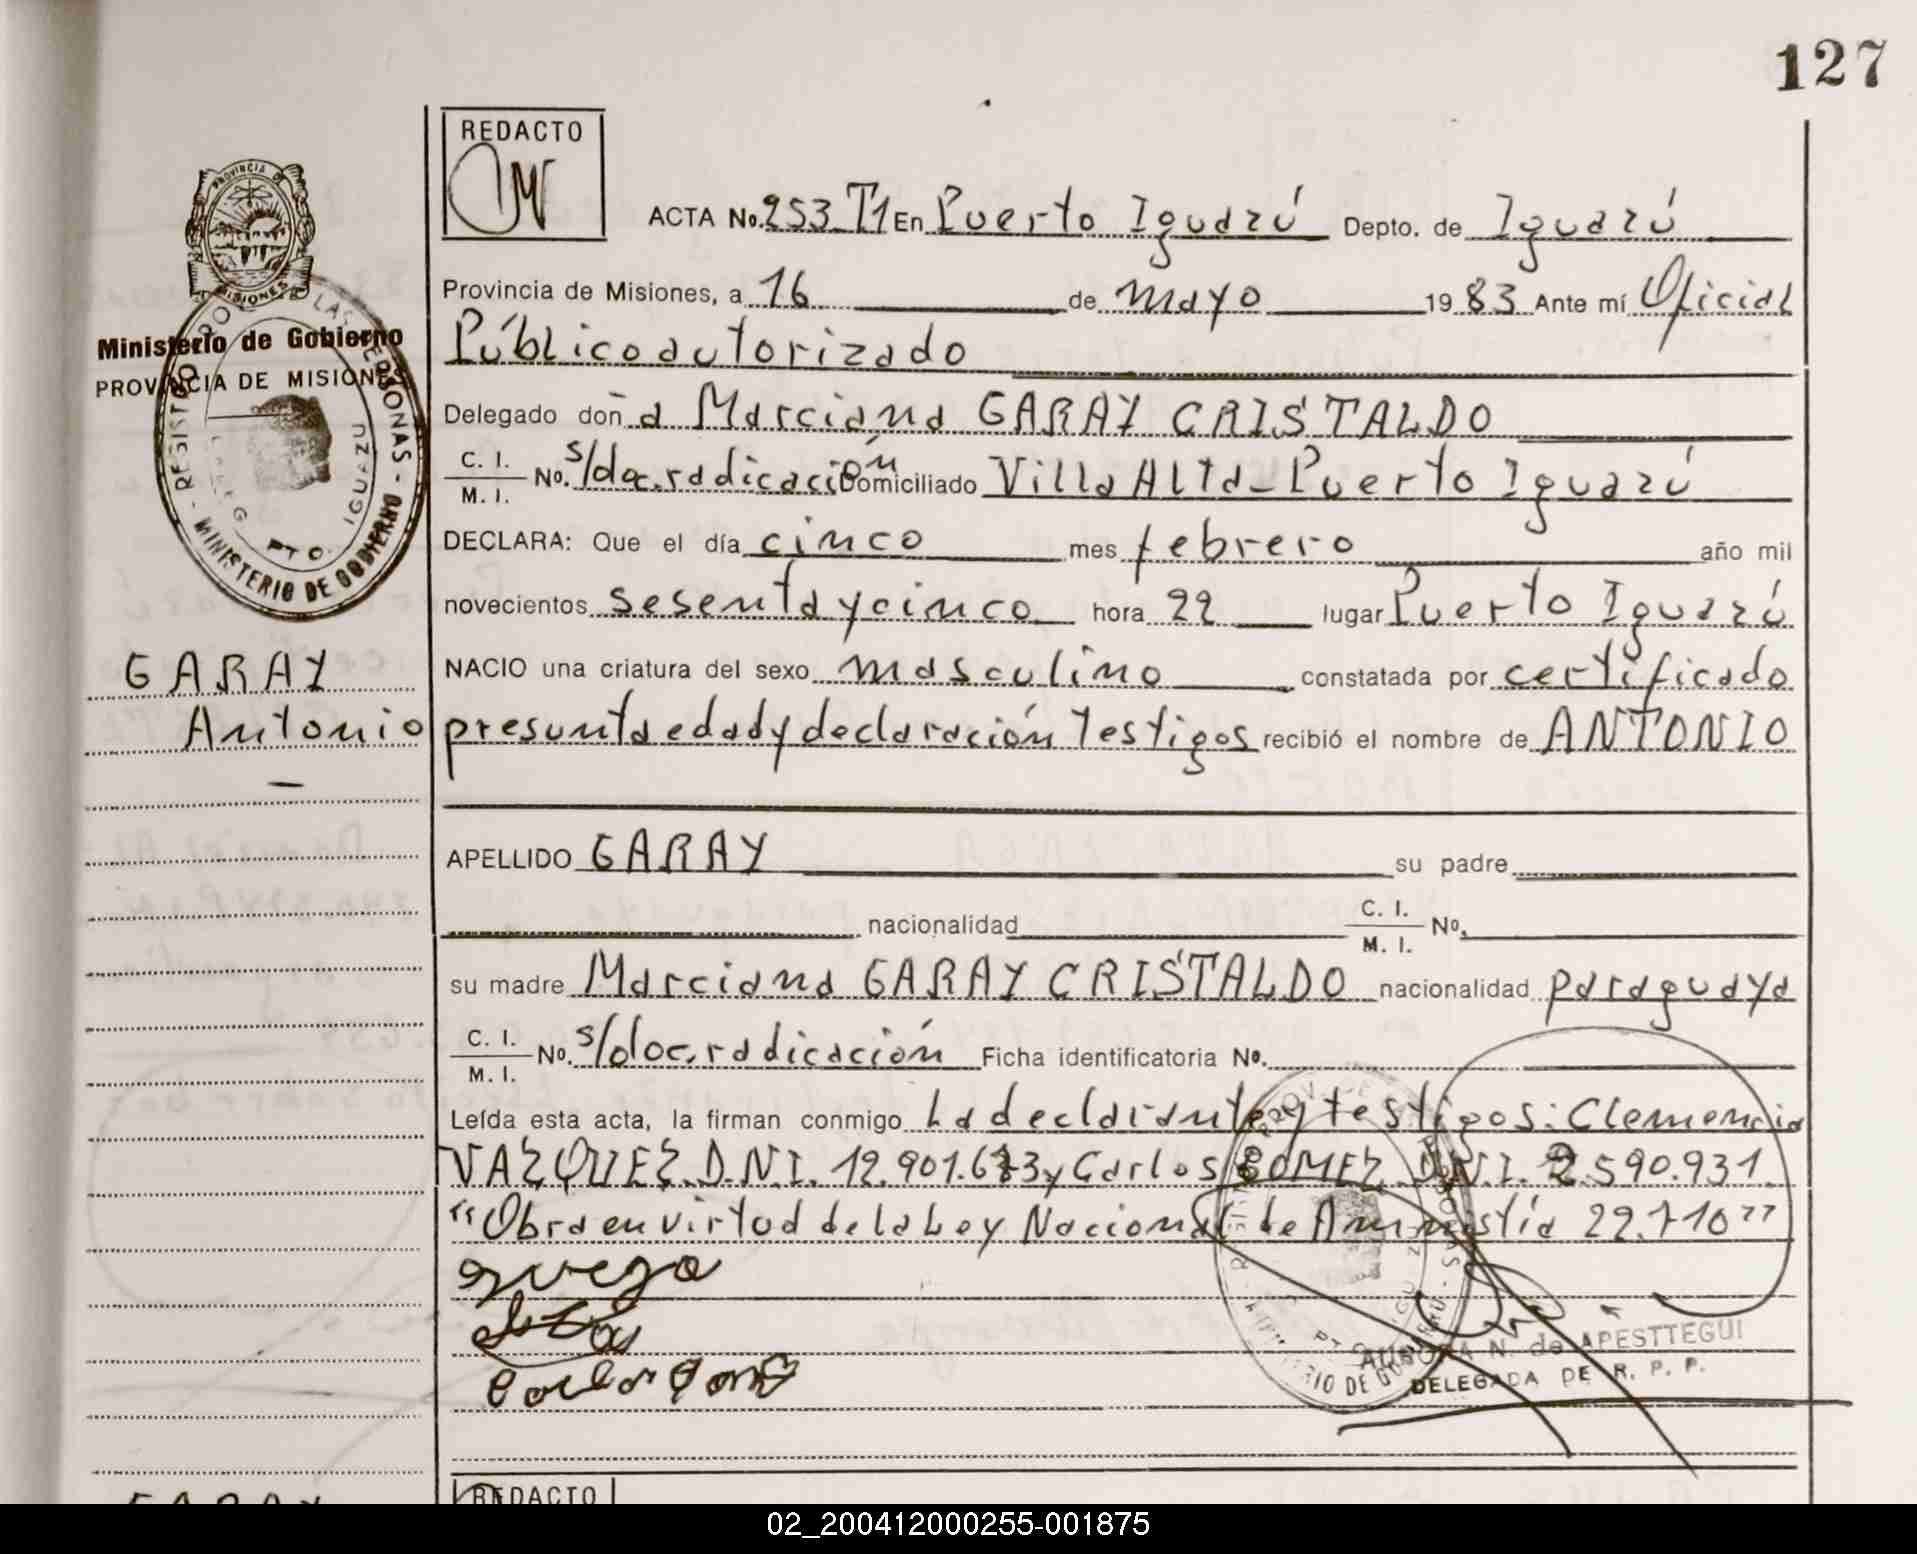 127
REDACTO
ACTA No. 253 T1 En Puerto Iguazú Depto. de Iguazú
Provincia de Misiones, a 16 de mayo 1983 Ante mí Oficial
Público autorizado
Ministerio de Gobierno
PROVINCIA DE MISIONES
Delegado doña Marciana GARAY CRISTALDO
C. I. M. I. No. s/doc. radicación Domiciliado Villa Alta - Puerto Iguazú
DECLARA: Que el día cinco mes febrero año mil
novecientos sesenta y cinco hora 22 lugar Puerto Iguazú
GARAY
NACIO una criatura del sexo masculino constatada por certificado
Antonio
presunta edad y declaración testigos recibió el nombre de ANTONIO
APELLIDO GARAY su padre
nacionalidad C. I. M. I. No.
su madre Marciana GARAY CRISTALDO nacionalidad paraguaya
C. I. M. I. No. s/doc. radicación Ficha identificatoria No.
Leída esta acta, la firman conmigo La declarante y testigos: Clemencia
VAZQUEZ D.N.I. 12.901. y Carlos GOMEZ D.N.I. .590.931.
"Obra en virtud de la Ley Nacional de Amnistía 22.110"
N. de APESTTEGUI
DELEGADA DE R. P. P.
REDACTO
02_200412000255-001875